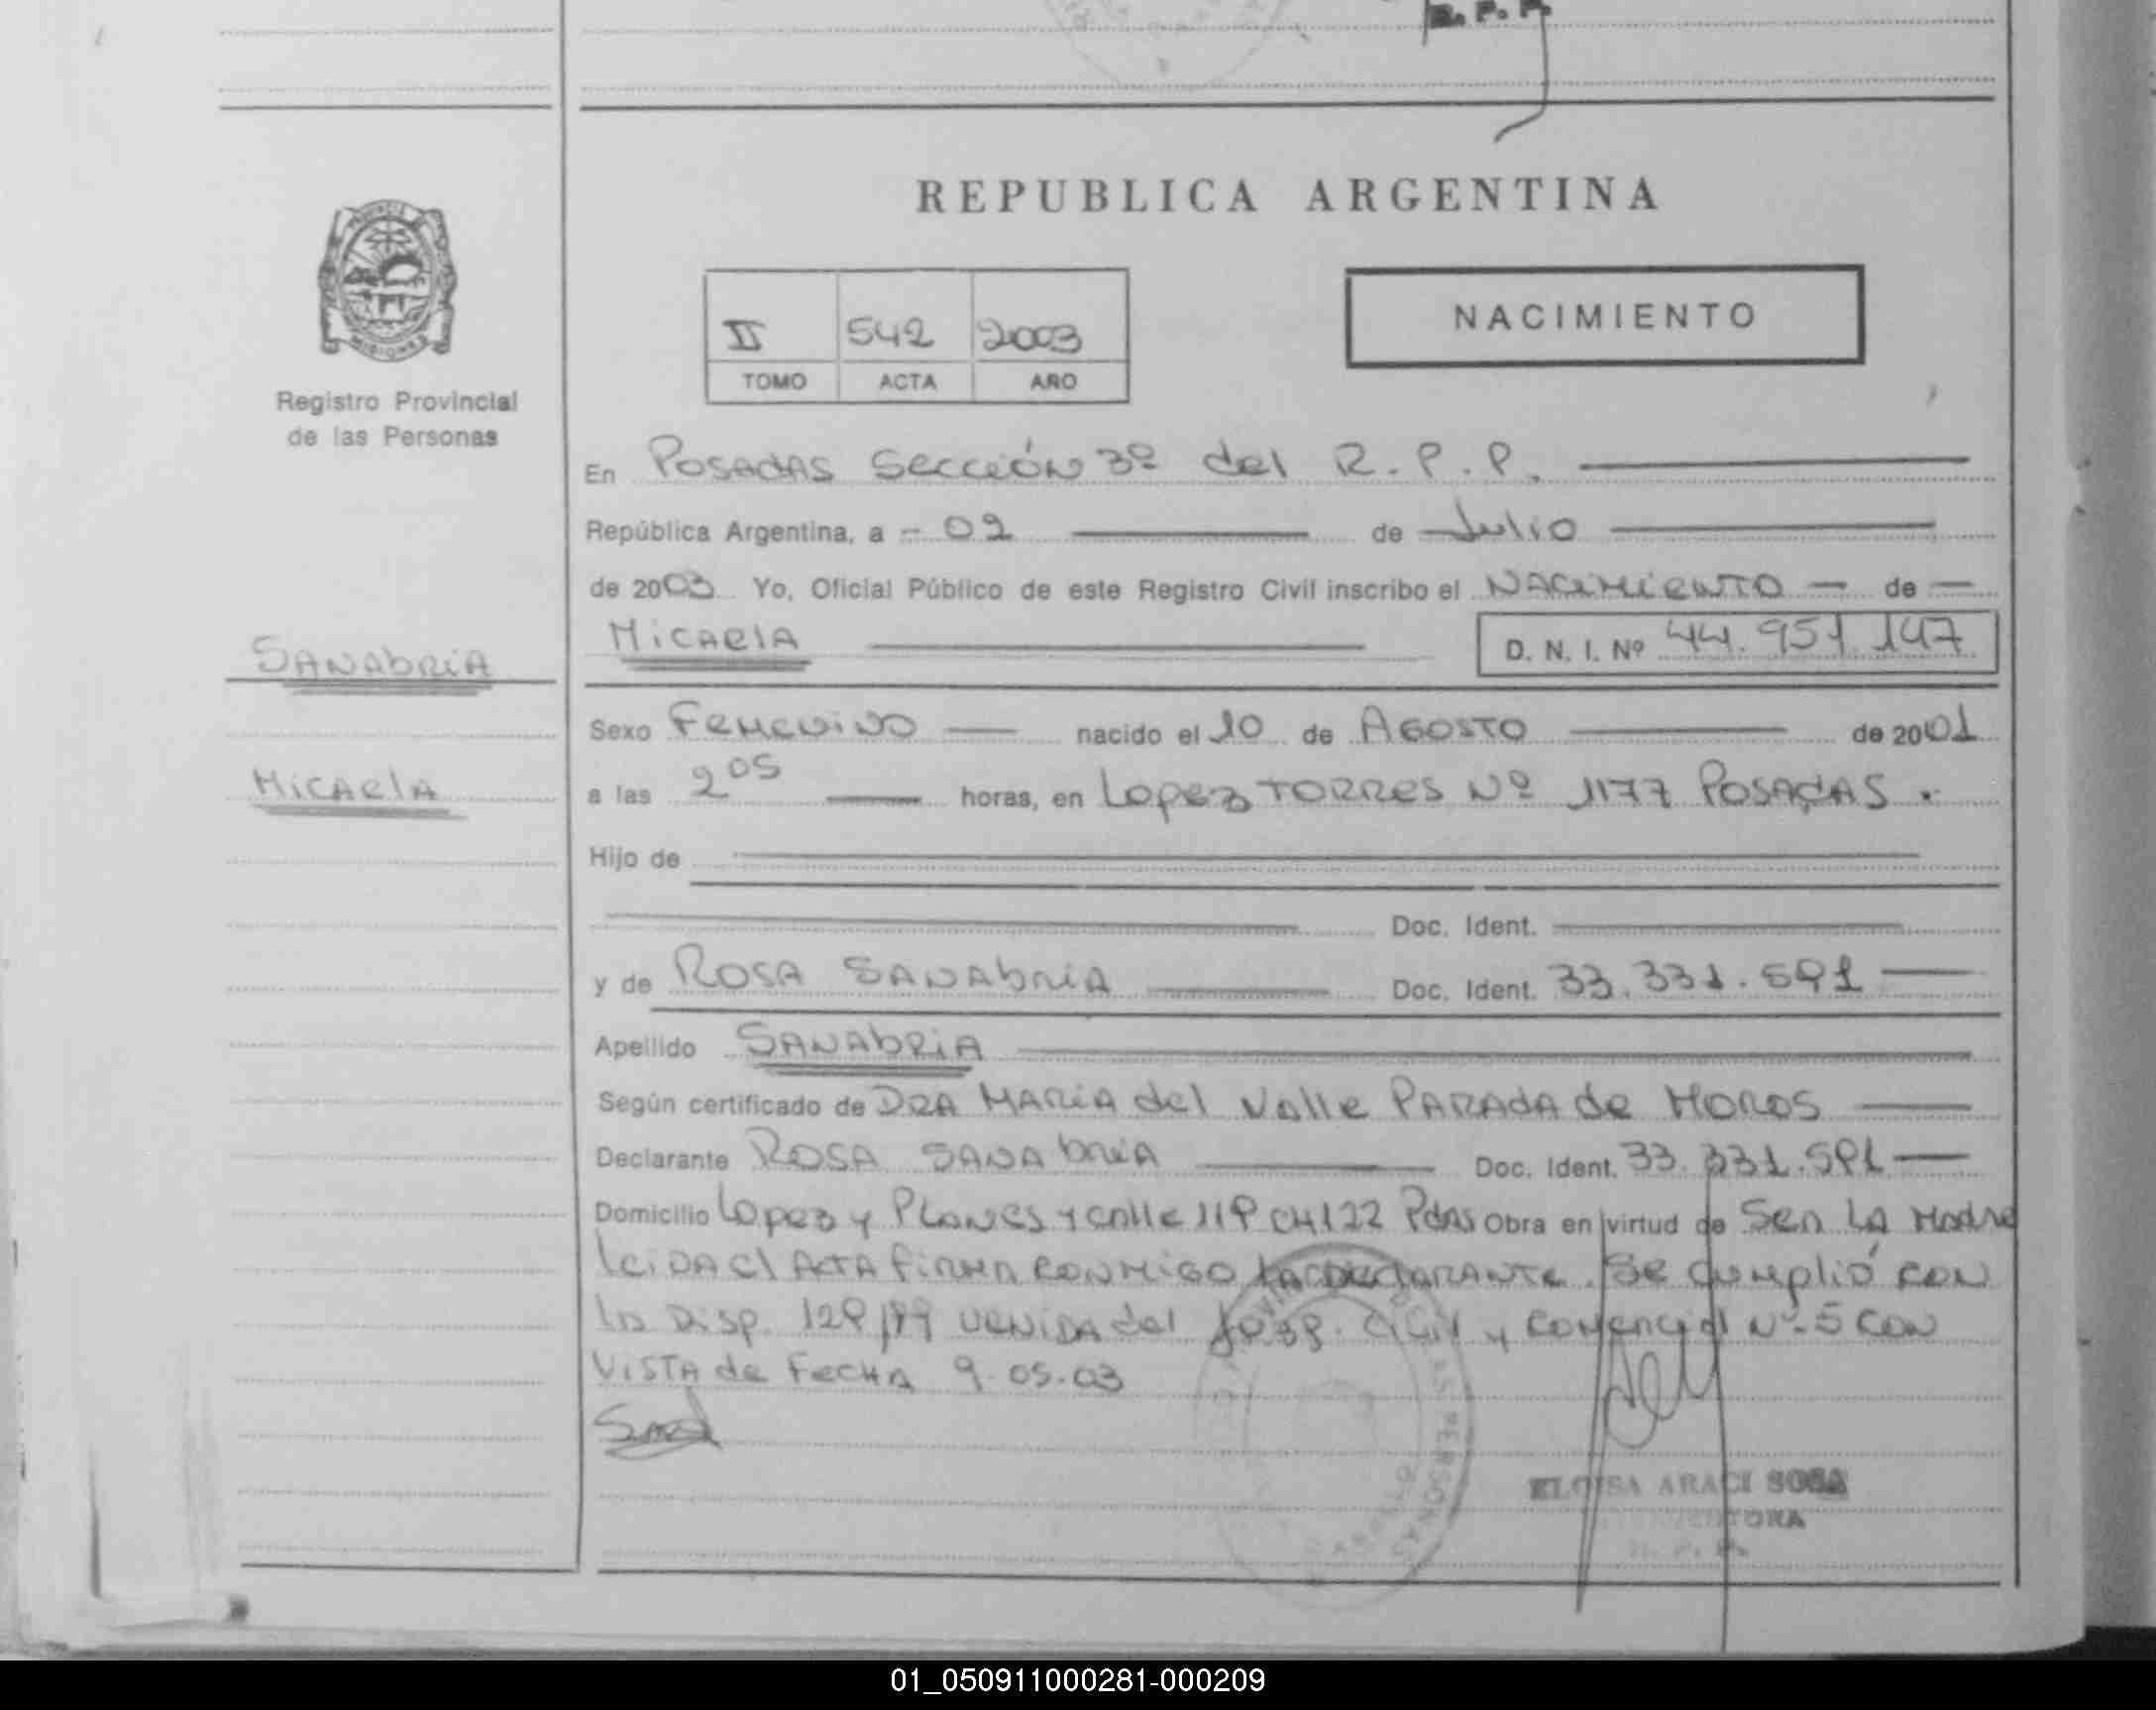 R. P. P.
REPUBLICA ARGENTINA
II 542 2003
TOMO ACTA AÑO
NACIMIENTO
MISIONES
Registro Provincial
de las Personas
En Posadas Sección 3º del R.P.P.
República Argentina, a 02 de Julio
de 2003 Yo, Oficial Público de este Registro Civil inscribo el NACIMIENTO de
SANABRIA
MICAELA D. N. I. Nº 44.951.147
Sexo FEMENINO nacido el 10 de AGOSTO de 2001
MICAELA
a las 2 05 horas, en Lopez TORRES Nº 1177 POSADAS.
Hijo de
Doc. Ident.
y de ROSA SANABRIA Doc. Ident. 33.331.591
Apellido SANABRIA
Según certificado de DRA MARIA del Valle PARADA de MOROS
Declarante ROSA SANABRIA Doc. Ident. 33.331.591
Domicilio Lopez y PLANES y calle 119 CH122 Pdas Obra en virtud de Ser LA Madre
leiDA el ACTA firma conmigo LA DECLARANTE. Se cumplió con
la Disp. 129/99 VENIDA del Juzg. Civil y Comercial Nº 5 CON
VISTA de FECHA 9.05.03
ELOISA ARACI SOSA
R. P. P.
01_050911000281-000209